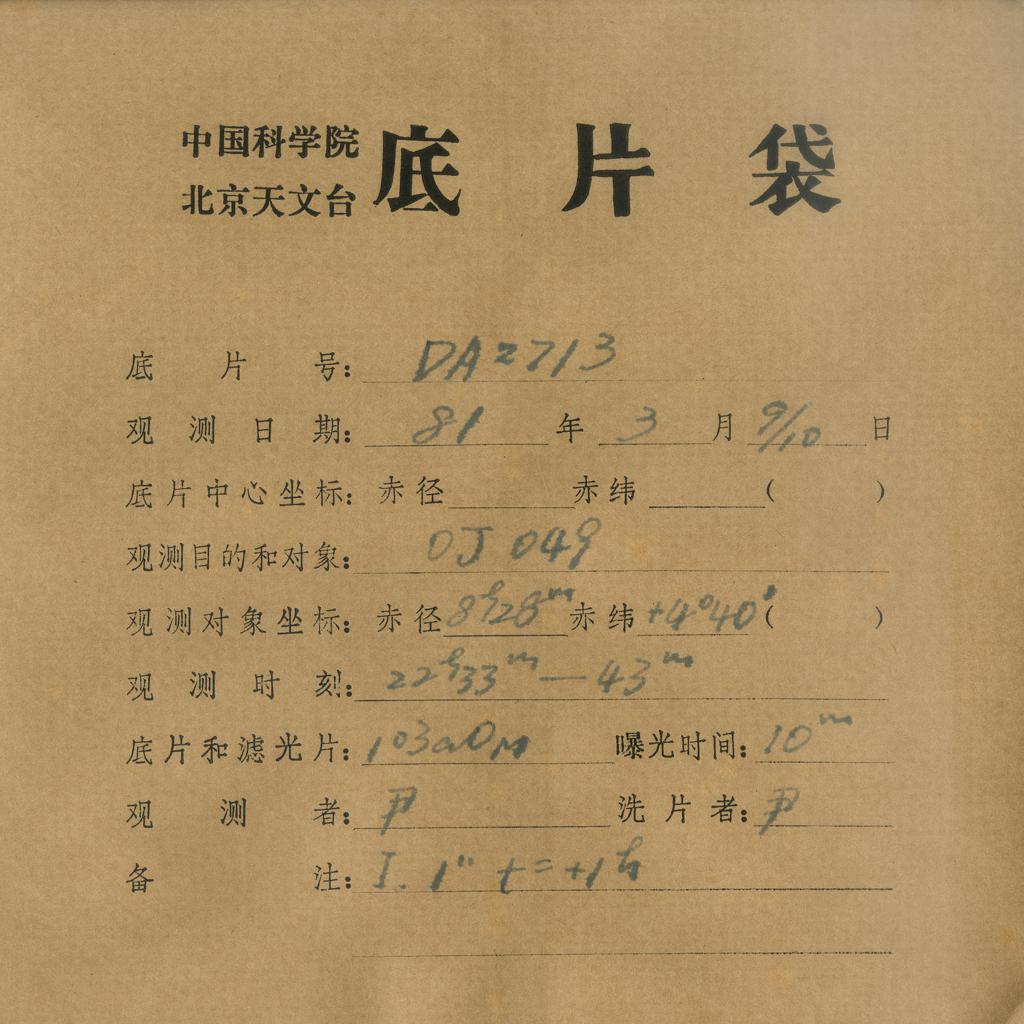 中国科学院
北京天文台
底片袋
底片号: DA2713
观测日期: 81年3月9/10日
底片中心坐标: 赤径 赤纬 ( )
观测目的和对象: OJ 049
观测对象坐标: 赤径 8h28m 赤纬 +4°40' ( )
观测时刻: 22h33m—43m
底片和滤光片: 103aOM 曝光时间: 10m
观测者: 尹 洗片者: 尹
备注: I. 1" t=+1h